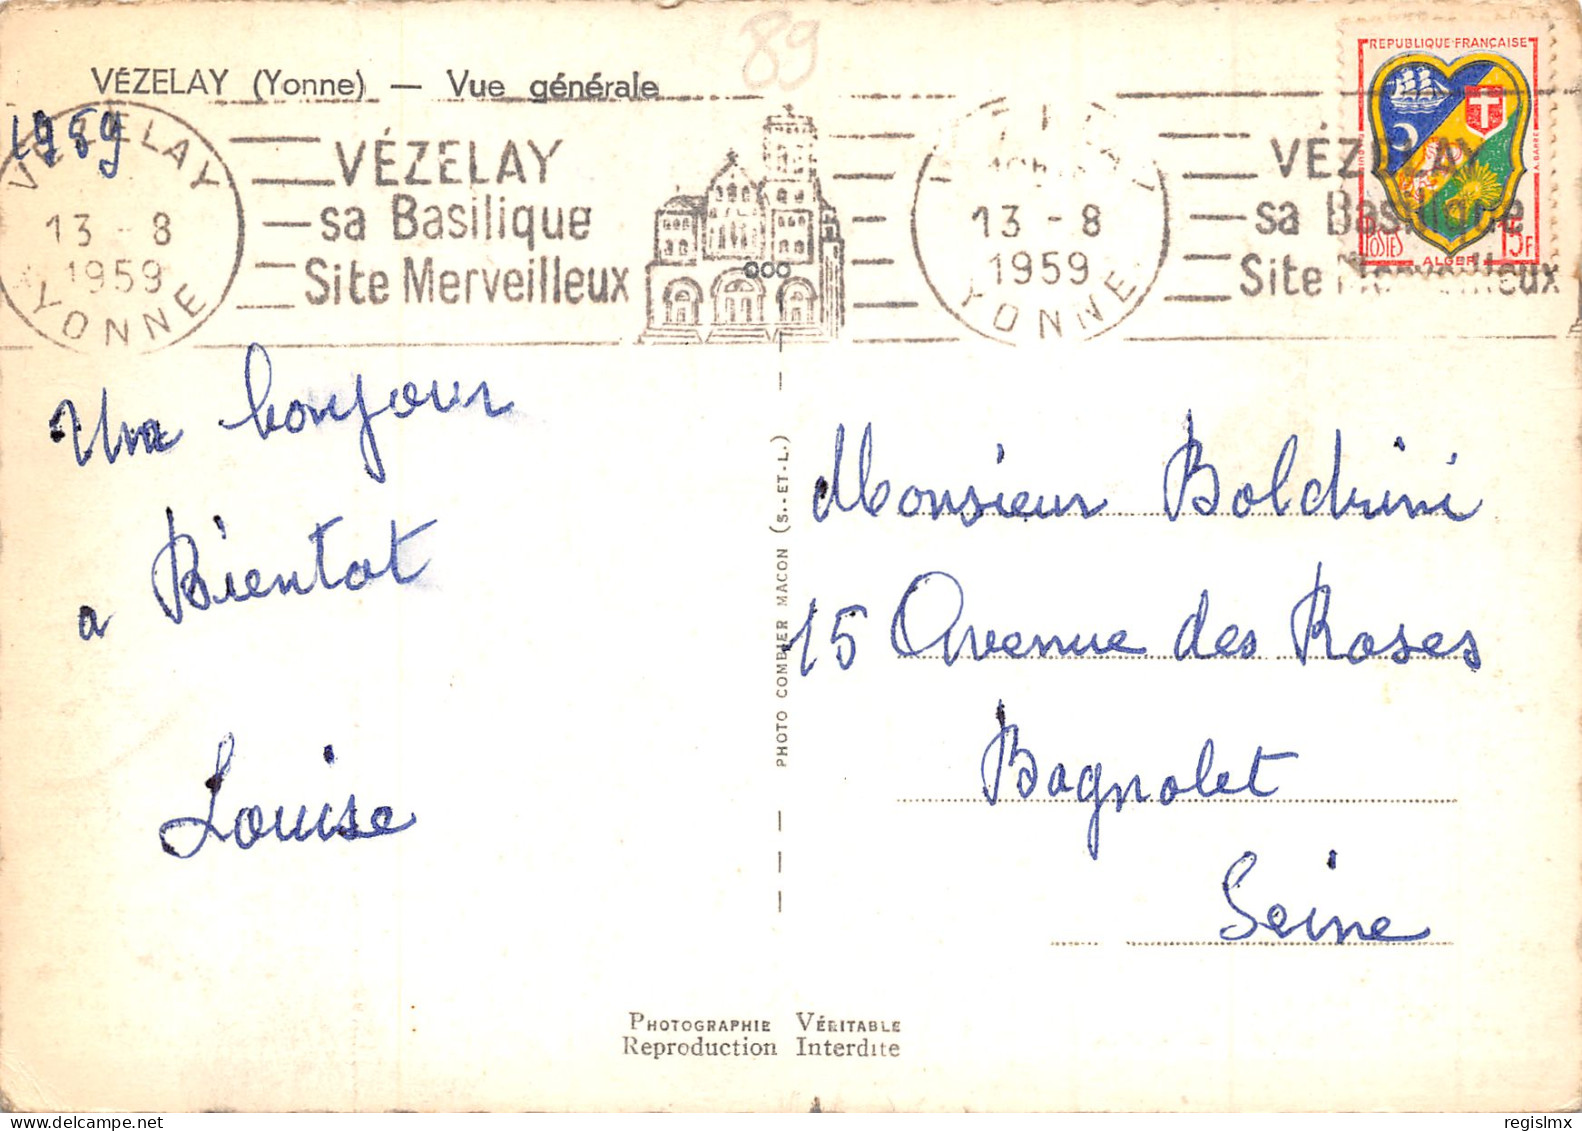 89
VÉZELAY (Yonne) — Vue générale
1959
VÉZELAY
13 - 8
1959
YONNE
VÉZELAY
sa Basilique
Site Merveilleux
13 - 8
1959
YONNE
VÉZELAY
sa Basilique
Site Merveilleux
REPUBLIQUE·FRANÇAISE
POSTES
ALGER
15F
Un bonjour
a Bientot
Louise
PHOTO COMBIER MACON (S.-ET-L.)
Monsieur Boldrini
15 Avenue des Roses
Bagnolet
Seine
PHOTOGRAPHIE VÉRITABLE
Reproduction Interdite
regislmx